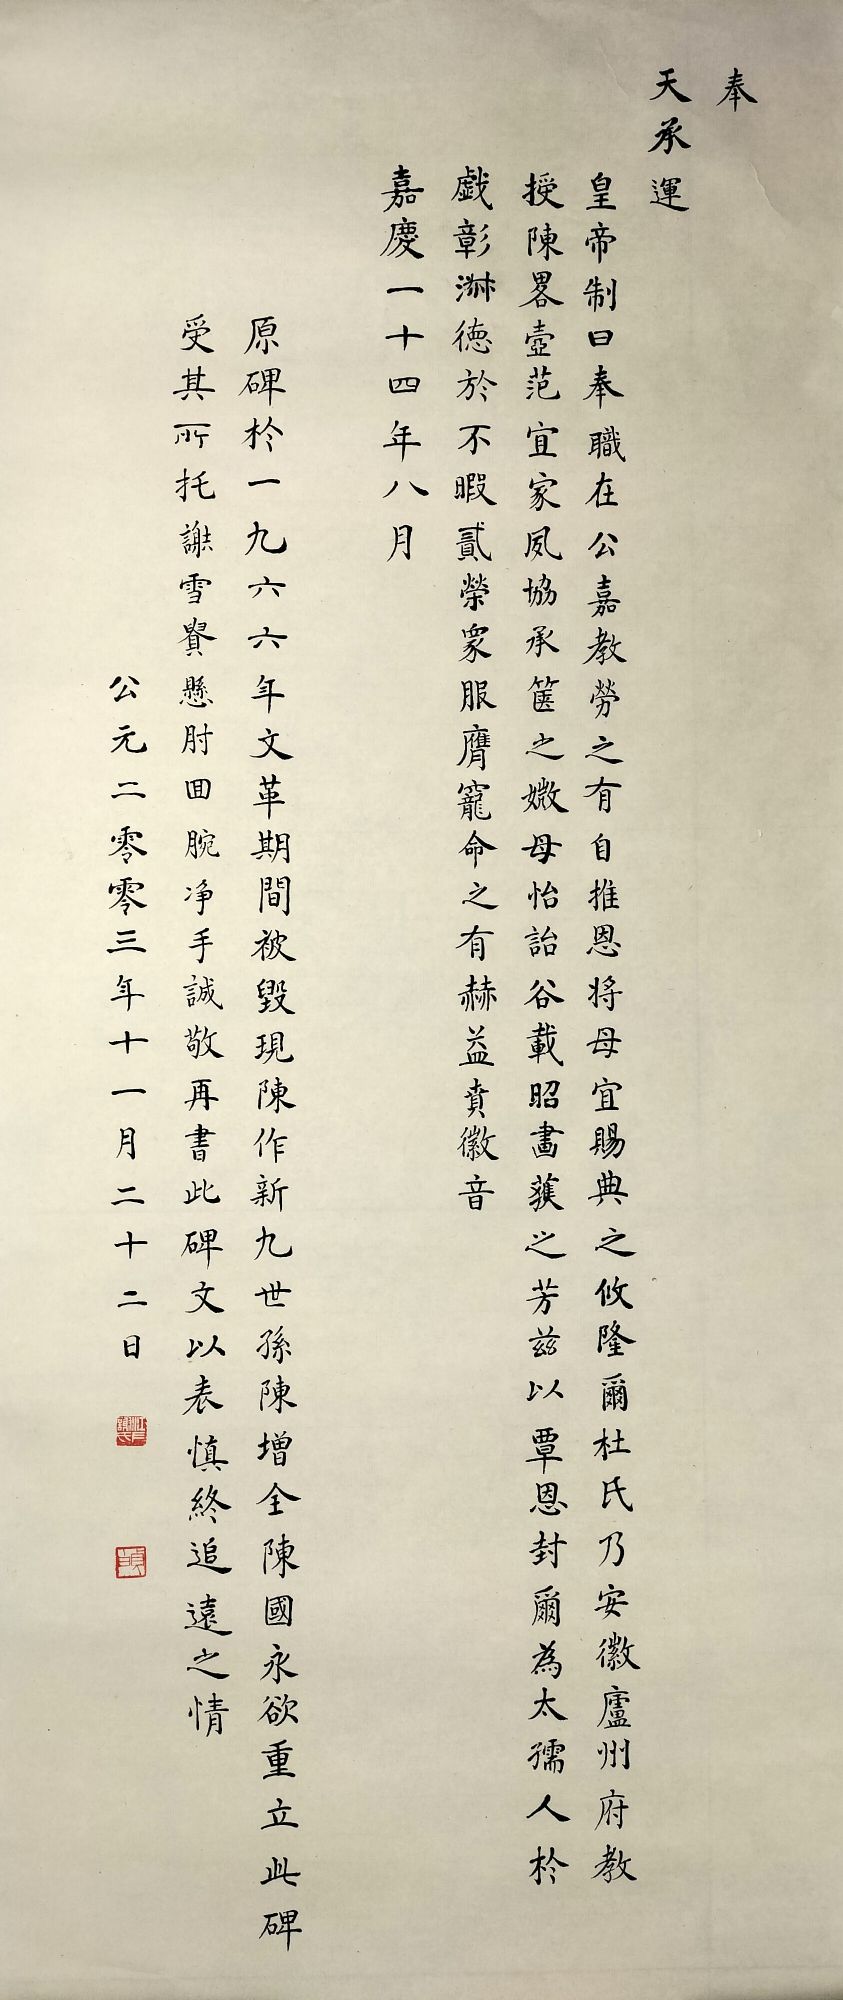 奉
天承運
皇帝制曰奉職在公嘉教勞之有自推恩将母宜賜典之攸隆爾杜氏乃安徽廬州府教
授陳畧壼范宜家夙協承筐之媺母怡詒谷載昭畵荻之芳兹以覃恩封爾為太孺人於
戲彰淋德於不暇貳榮衆服膺寵命之有赫益賁徽音
嘉慶一十四年八月
原碑於一九六六年文革期間被毀現陳作新九世孫陳增全陳國永欲重立此碑
受其所托謝雪贇懸肘回腕净手誠敬再書此碑文以表慎終追遠之情
公元二零零三年十一月二十二日